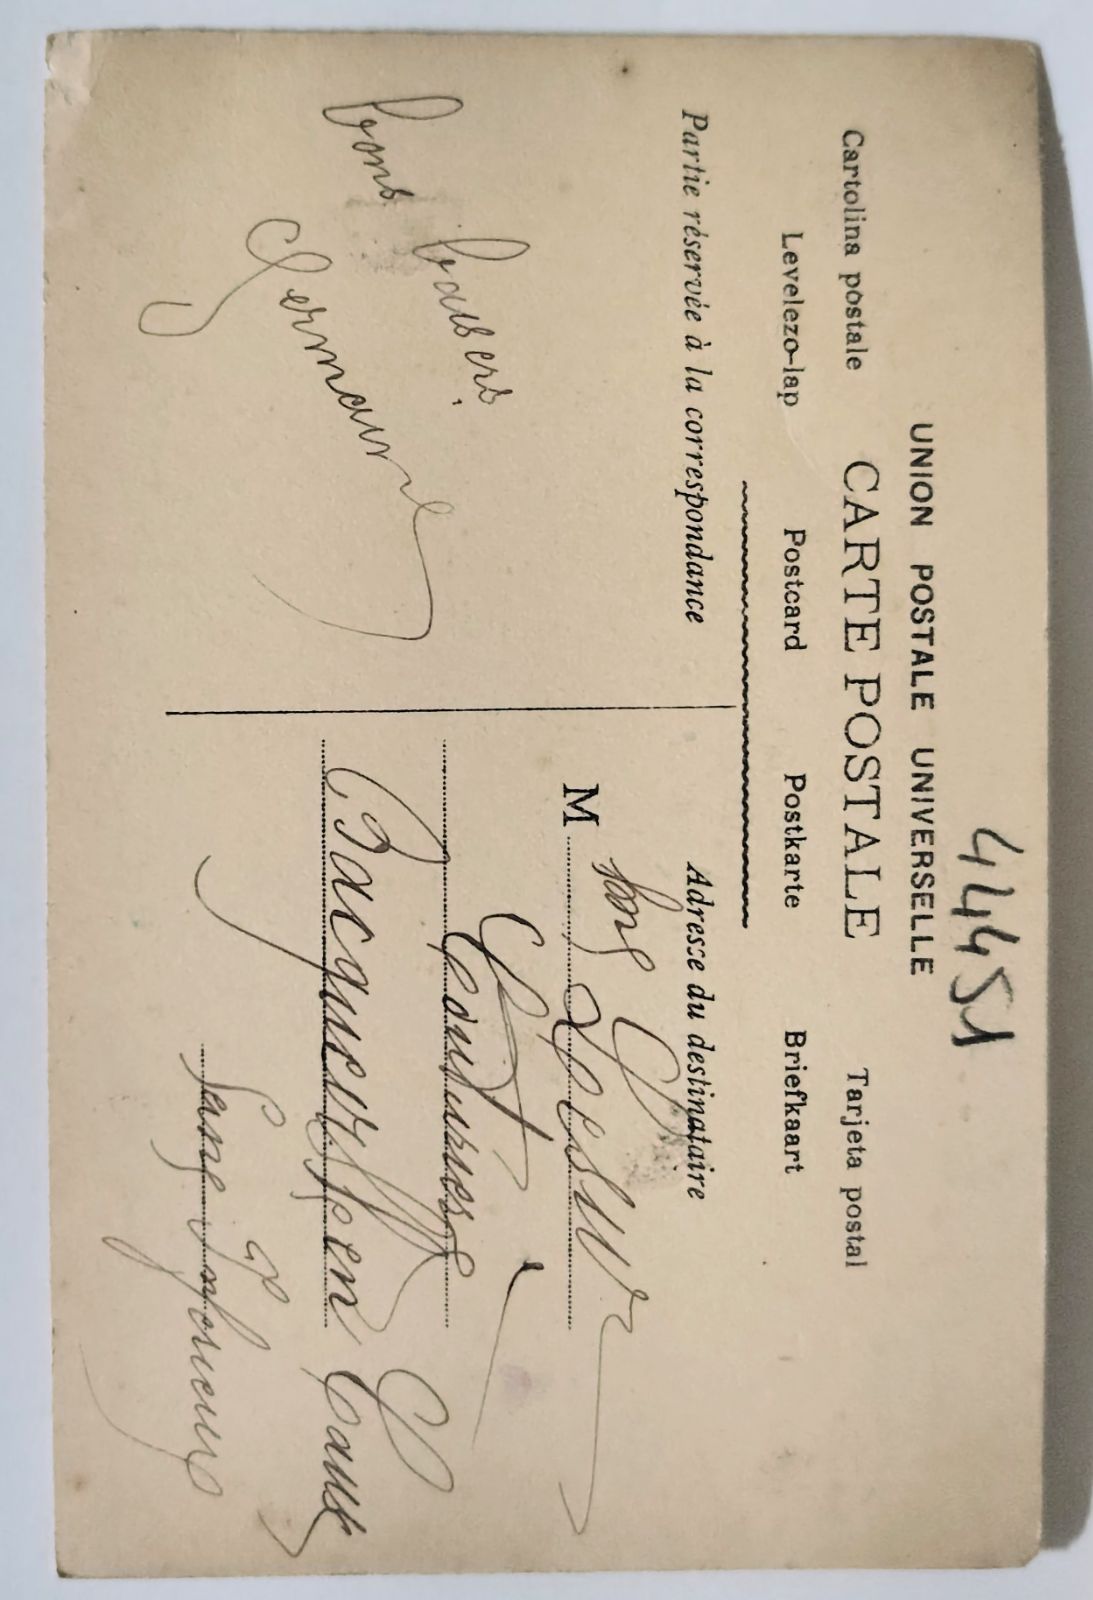 44451
UNION POSTALE UNIVERSELLE
Cartolina postale CARTE POSTALE Tarjeta postal
Levelezo-lap Postcard Postkarte Briefkaart
Partie réservée à la correspondance
Adresse du destinataire
bons baisers
Germaine
M
Lesur
Couturière
Bacqueville en Caux
Seine Inférieure